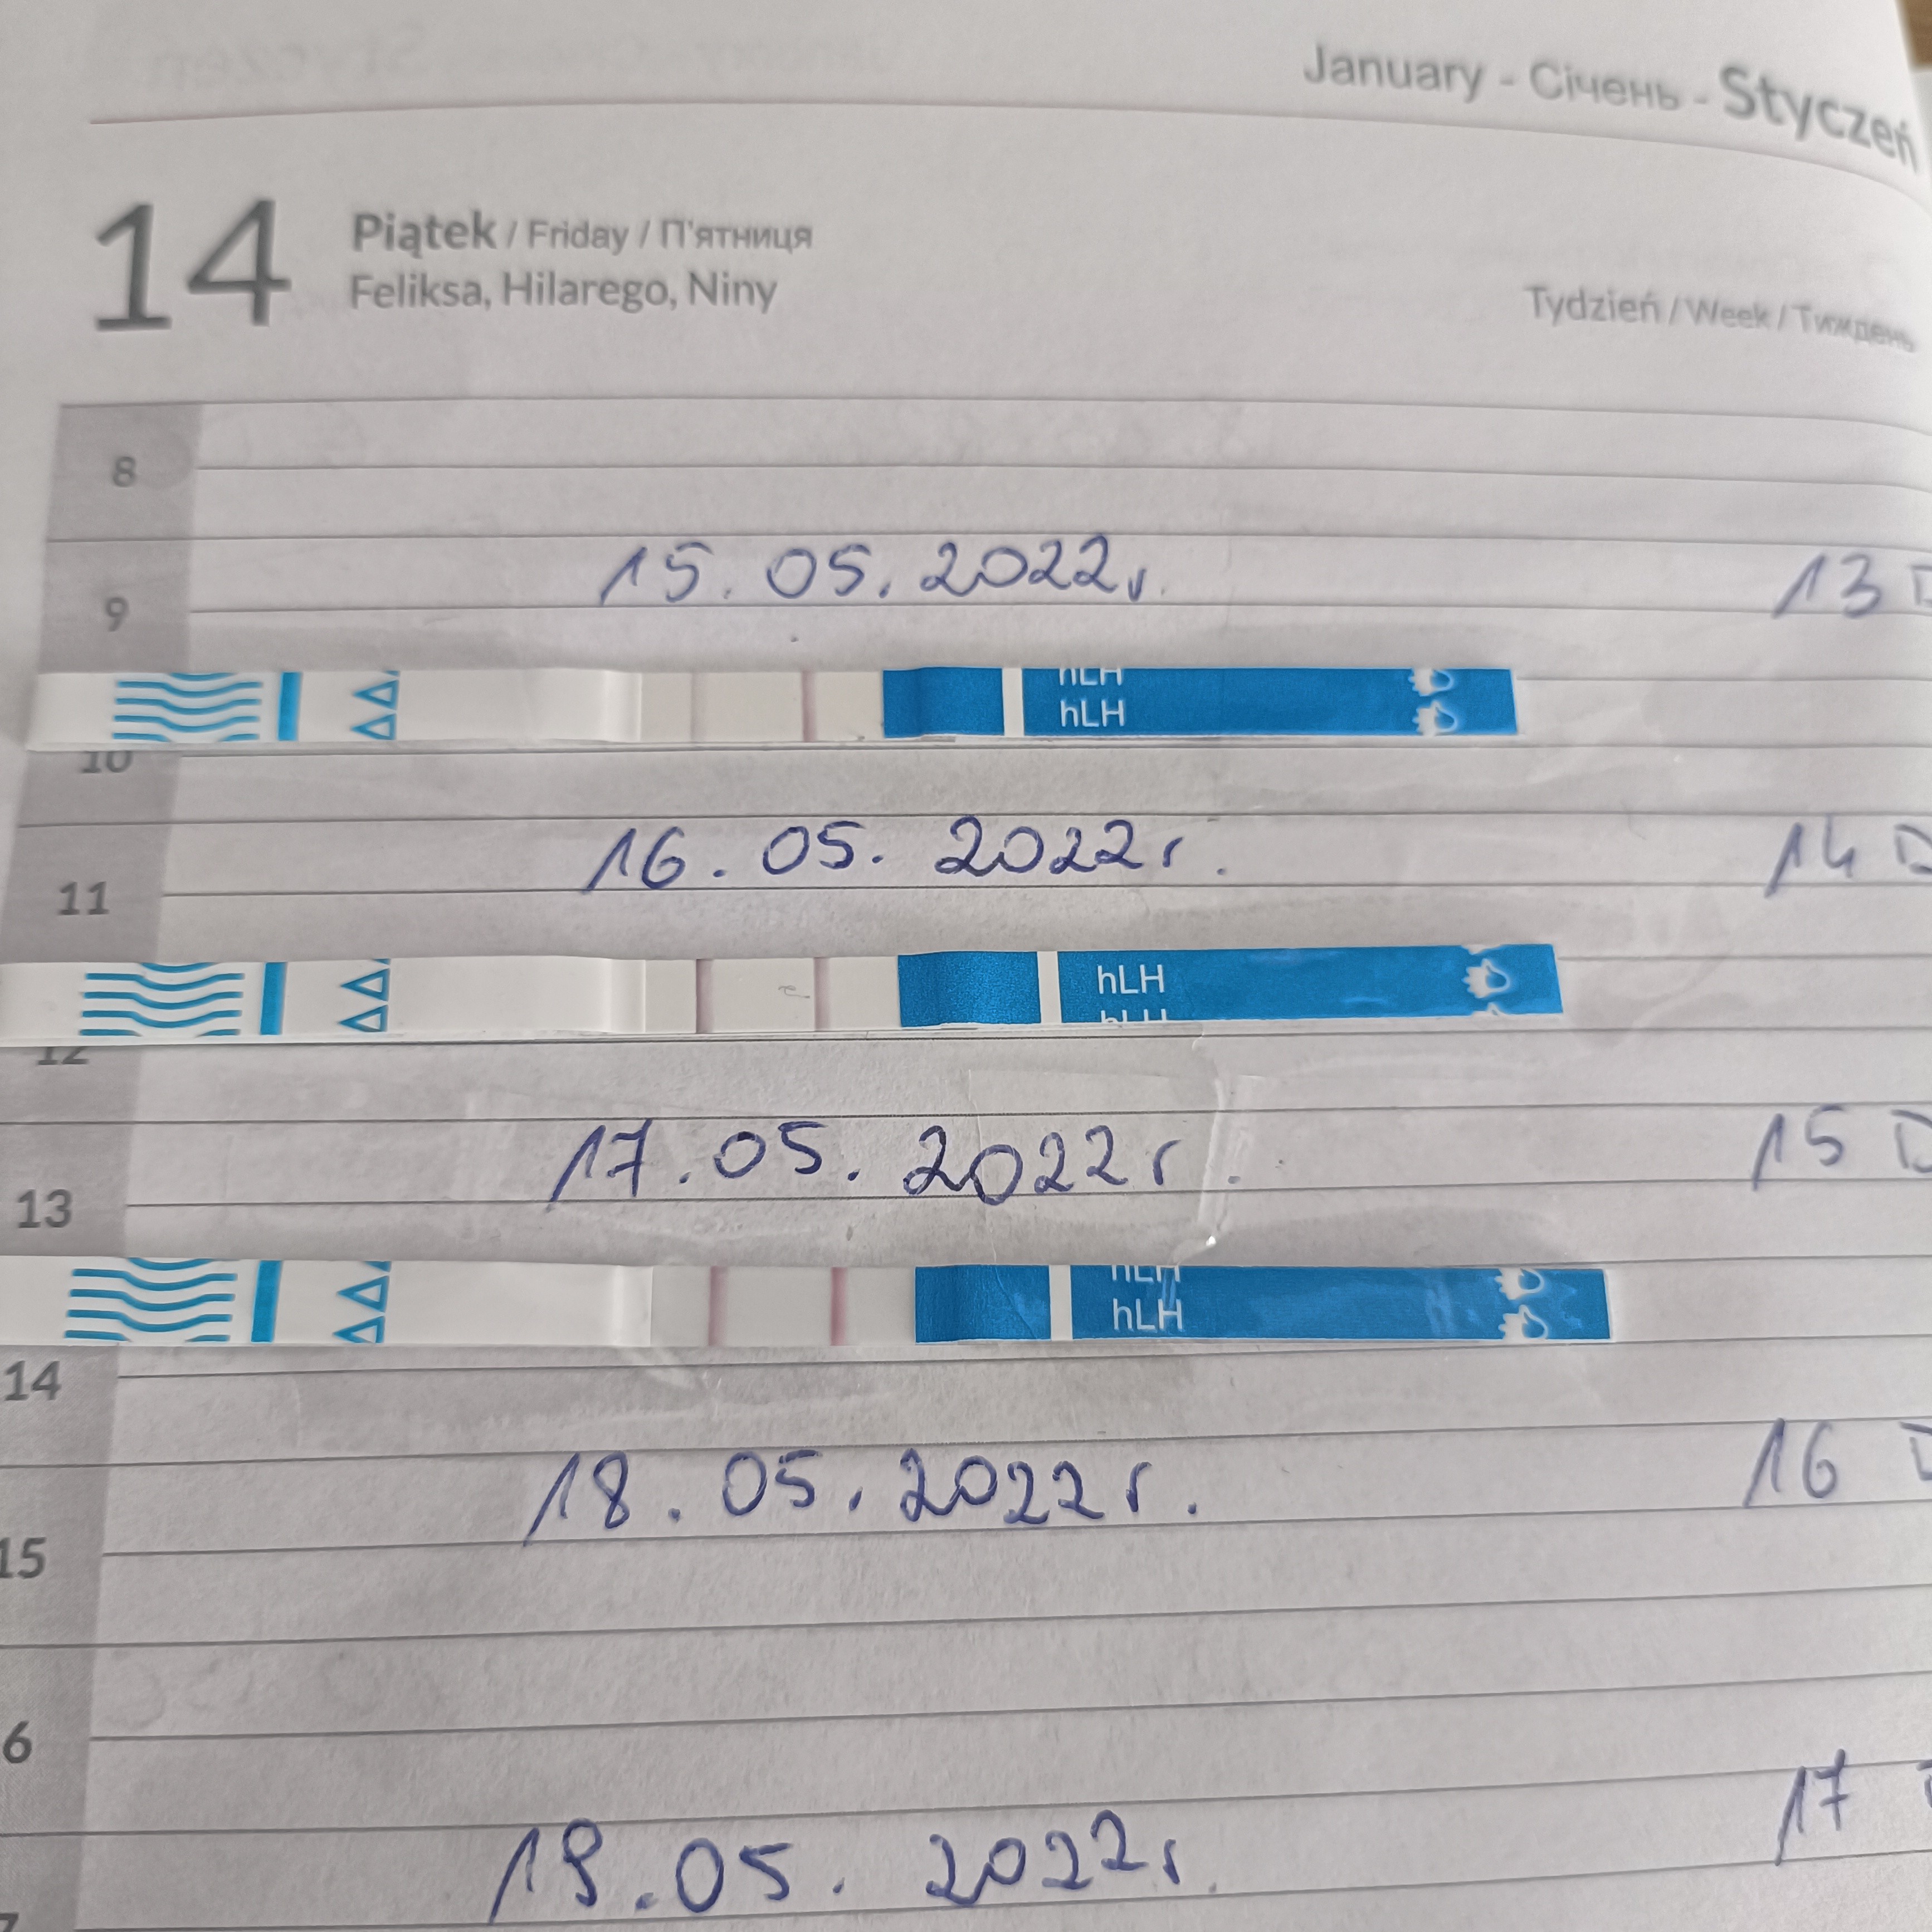 January - Січень - Styczeń
14
Piątek / Friday / П'ятниця
Feliksa, Hilarego, Niny
Tydzień / Week / Тиждень
8
15.05.2022r. 13
9
hLH
hLH
10
16.05.2022r. 14
11
hLH
hLH
12
17.05.2022r. 15
13
hLH
hLH
14
18.05.2022r. 16
15
6
19.05.2022r. 17